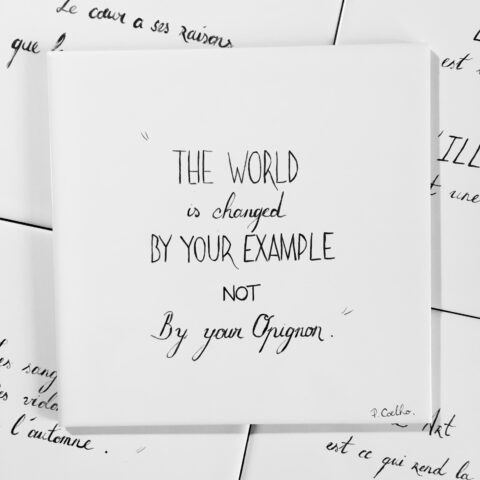 Le cœur a ses raisons
que
est
"
THE WORLD
is changed
BY YOUR EXAMPLE
NOT
By your Opignon.
"
P. Coelho.
une
l'automne.
Art
est ce qui rend la